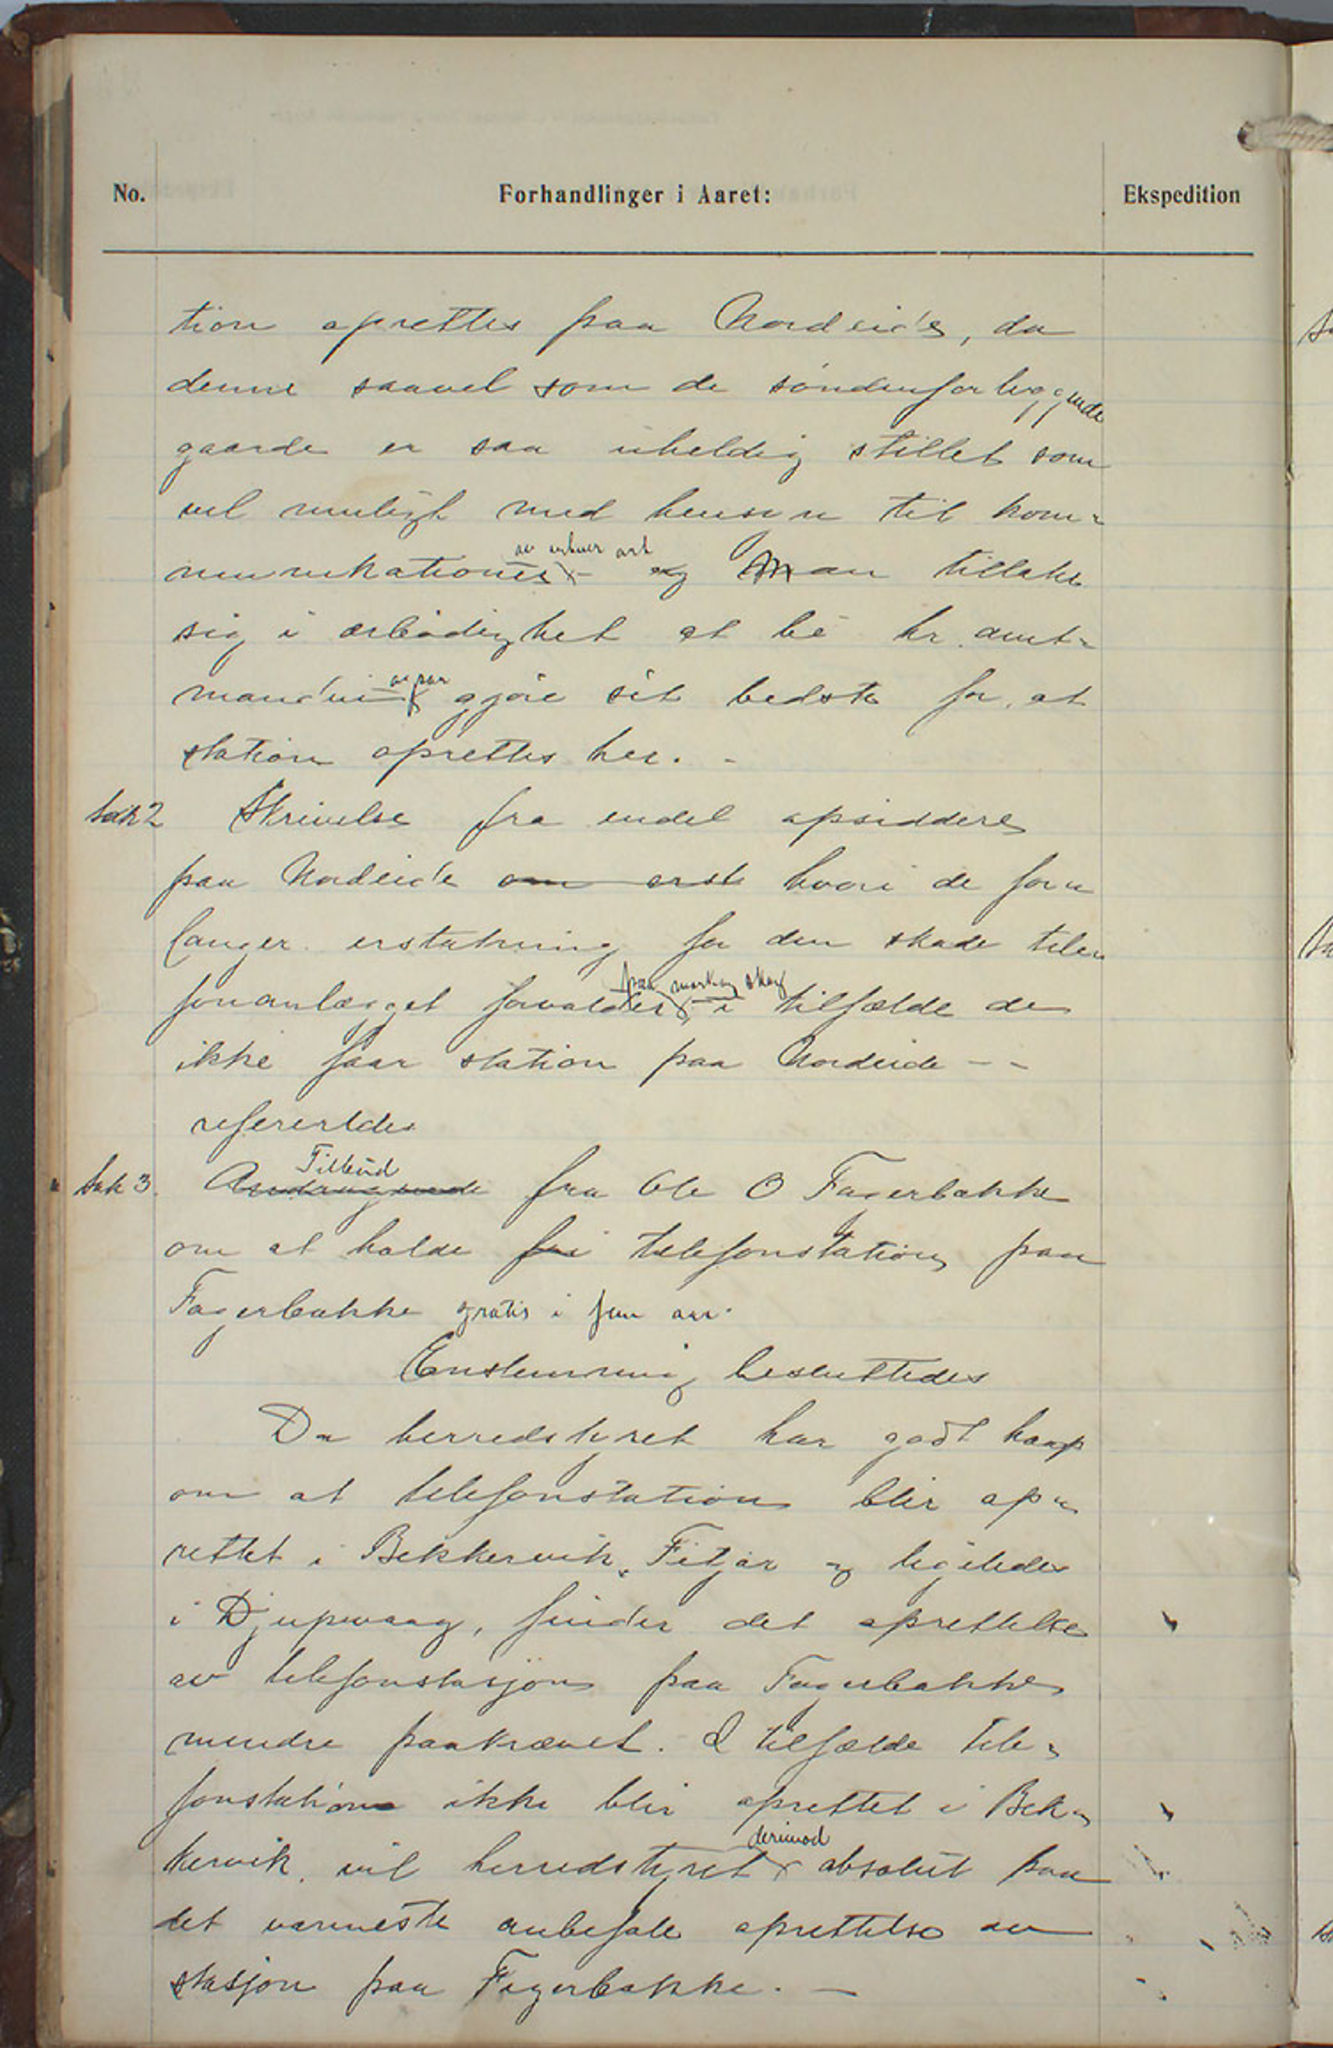 No. Forhandlinger i Aaret: Ekspedition
tion oprettes paa Nordeide, da
denne saavel som de søndenforliggende
gaarde er saa uheldig stillet som
vel muligt med hensyn til kom-
munikationer av enhver art og Man tillater
sig i ærbødighet at be hr. amt-
manden gjøre sit bedste for at
station oprettes her. -
Sak 2 Skrivelse fra endel opsiddere
paa Nordeide om erst hvori de for-
langer erstatning for den skade tele-
fonanlægget forvolder paa mark og skog, i tilfælde de
ikke faar station paa Nordeide - -
refereredes
Sak 3. Andragende Tilbud fra Ole O Fagerbakke
om at holde fri telefonstation paa
Fagerbakke gratis i fem aar.
Enstemmig besluttedes
Da herredstyret har godt haap
om at telefonstation blir op-
rettet i Bekkervik, Fitjar og ligeledes
i Djupevaag, finder det oprettelse
av telefonstasjon paa Fagerbakke
mindre paakrævet. I tilfælde tele-
fonstation ikke blir oprettet i Bek-
kervik, vil herredstyret derimod absolut paa
det varmeste anbefale oprettelse av
stasjon paa Fagerbakke. -